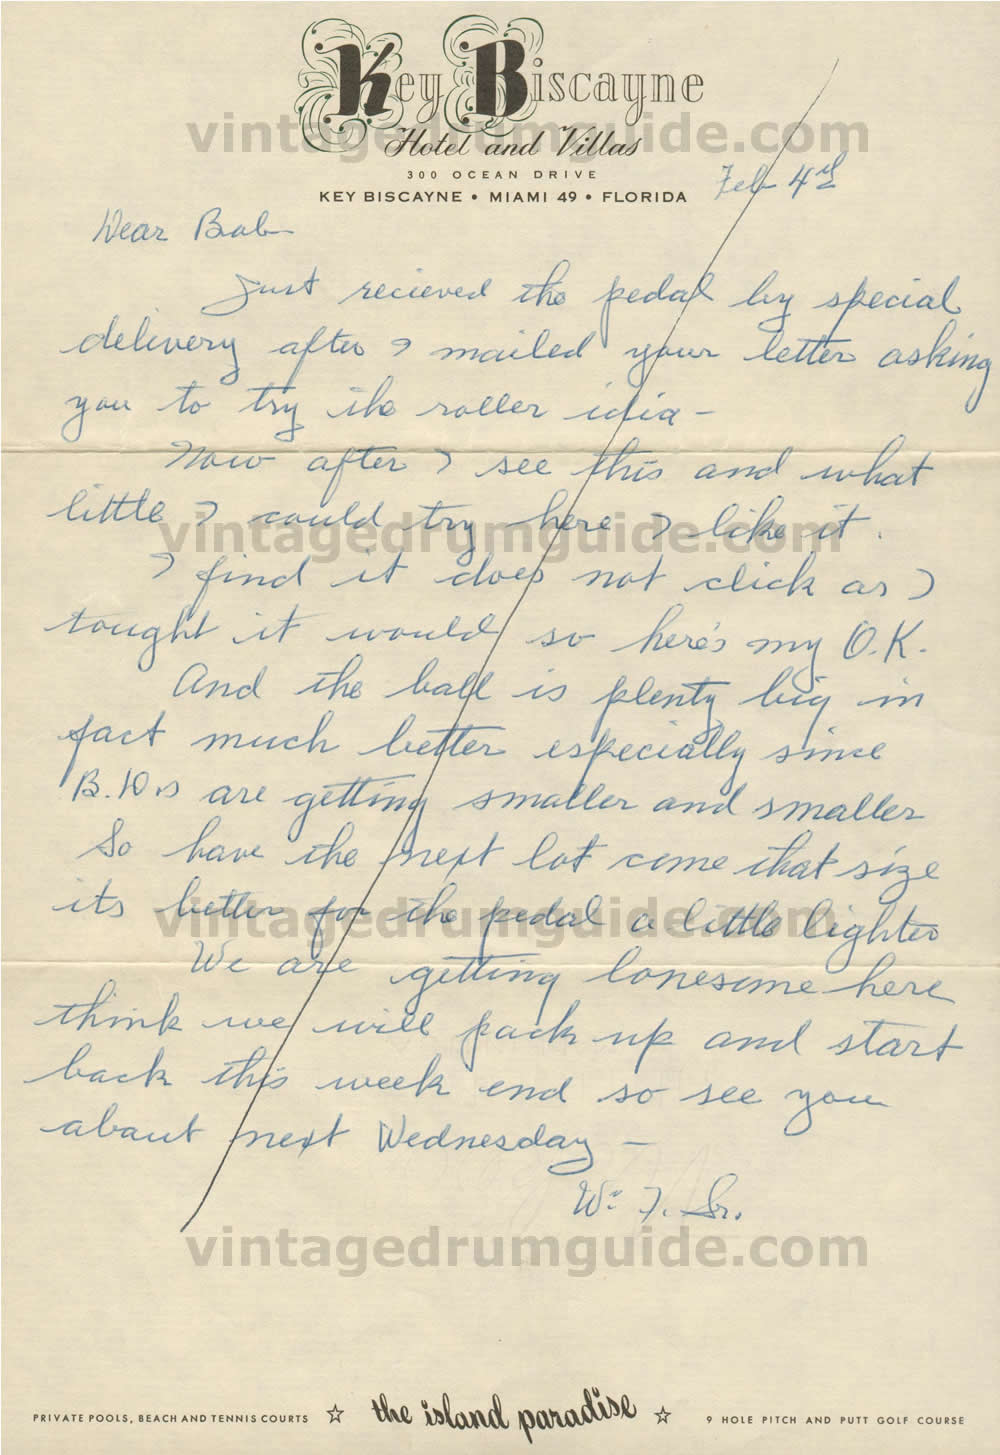 Key Biscayne
vintagedrumguide.com
Hotel and Villas
300 OCEAN DRIVE
KEY BISCAYNE • MIAMI 49 • FLORIDA
Feb 4th
Dear Bob
Just recieved the pedal by special
delivery after I mailed your letter asking
you to try the roller idia -
Now after I see this and what
little I could try here I like it.
vintagedrumguide.com
I find it does not click as I
tought it would so here's my O.K.
And the ball is plenty big in
fact much better especially since
B.D.s are getting smaller and smaller
So have the next lot come that size
its better for the pedal a little lighter
vintagedrumguide.com
We are getting lonesome here
think we will pack up and start
back this week end so see you
about next Wednesday -
Wm F. Sr.
vintagedrumguide.com
PRIVATE POOLS, BEACH AND TENNIS COURTS ☆ the island paradise ☆ 9 HOLE PITCH AND PUTT GOLF COURSE